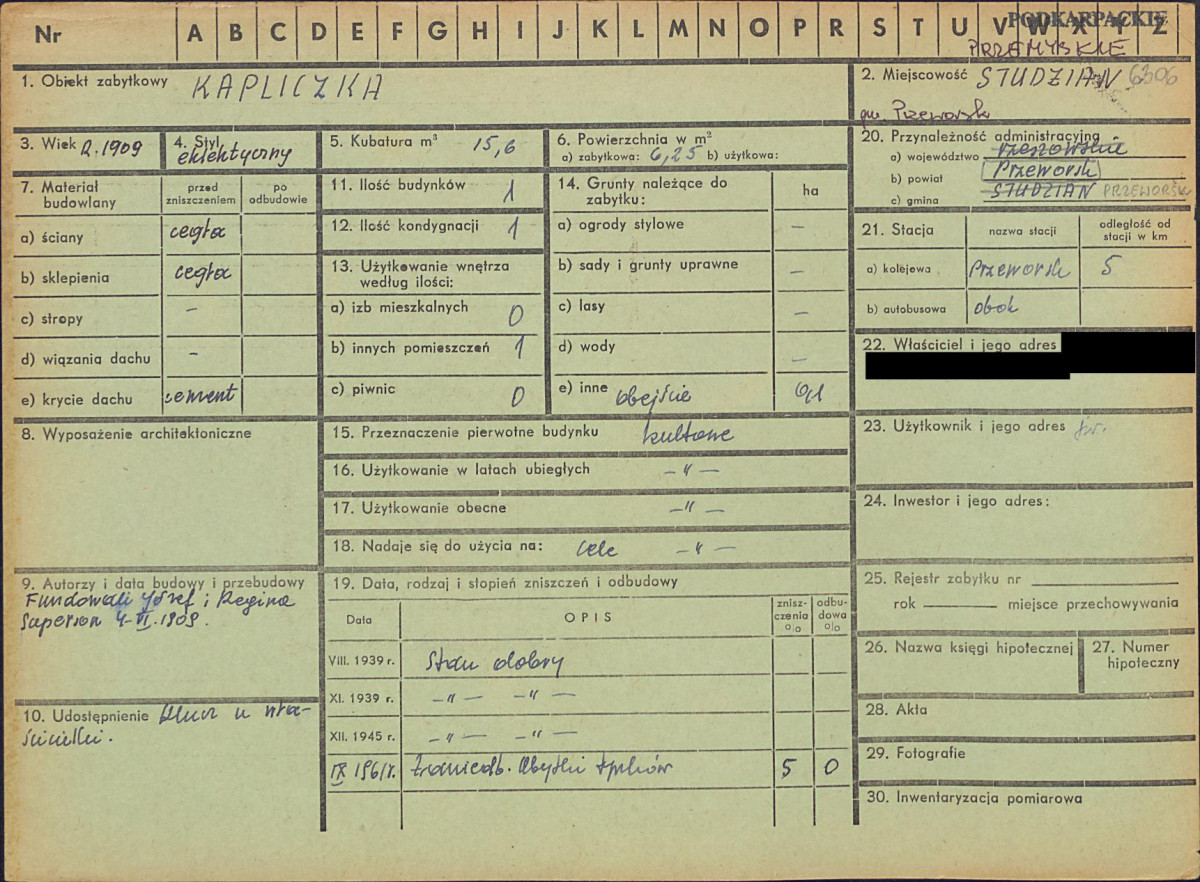 Nr A B C D E F G H I J K L M N O P R S T U V W X Y Z
PODKARPACKIE
PRZEMYSKIE
1. Obiekt zabytkowy KAPLICZKA
2. Miejscowość STUDZIAN 6306
gm. Przeworsk
3. Wiek R. 1909
4. Styl eklektyczny
5. Kubatura m³ 15,6
6. Powierzchnia w m²
a) zabytkowa: 6,25 b) użytkowa:
20. Przynależność administracyjna
a) województwo rzeszowskie
b) powiat Przeworsk
c) gmina STUDZIAN PRZEWORSK
7. Materiał budowlany
przed zniszczeniem
po odbudowie
a) ściany cegła
b) sklepienia cegła
c) stropy –
d) wiązania dachu –
e) krycie dachu cement
11. Ilość budynków 1
12. Ilość kondygnacji 1
13. Użytkowanie wnętrza
według ilości:
a) izb mieszkalnych 0
b) innych pomieszczeń 1
c) piwnic 0
14. Grunty należące do
zabytku:
ha
a) ogrody stylowe –
b) sady i grunty uprawne –
c) lasy –
d) wody –
e) inne obejście 0,1
21. Stacja
nazwa stacji
odległość od
stacji w km
a) kolejowa Przeworsk 5
b) autobusowa obok
22. Właściciel i jego adres
23. Użytkownik i jego adres j.w.
24. Inwestor i jego adres:
8. Wyposażenie architektoniczne
15. Przeznaczenie pierwotne budynku kultowe
16. Użytkowanie w latach ubiegłych – „ –
17. Użytkowanie obecne – „ –
18. Nadaje się do użycia na: cele – „ –
9. Autorzy i data budowy i przebudowy
Fundowali Józef i Regina
Superson 4-VI.1909.
10. Udostępnienie klucz u wła-
ścicielki.
19. Data, rodzaj i stopień zniszczeń i odbudowy
Data
OPIS
znisz-
czenia
%
odbu-
dowa
%
VIII. 1939 r. Stan dobry
XI. 1939 r. – „ – – „ –
XII. 1945 r. – „ – – „ –
IX 1961r. Zaniedb. Ubytki tynków 5 0
25. Rejestr zabytku nr
rok miejsce przechowywania
26. Nazwa księgi hipotecznej
27. Numer
hipoteczny
28. Akta
29. Fotografie
30. Inwentaryzacja pomiarowa